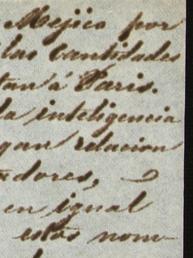 Mejico por
las cantidades
tan á Paris.
la inteligencia
gan relacion
adores,
en igual
estos nom-